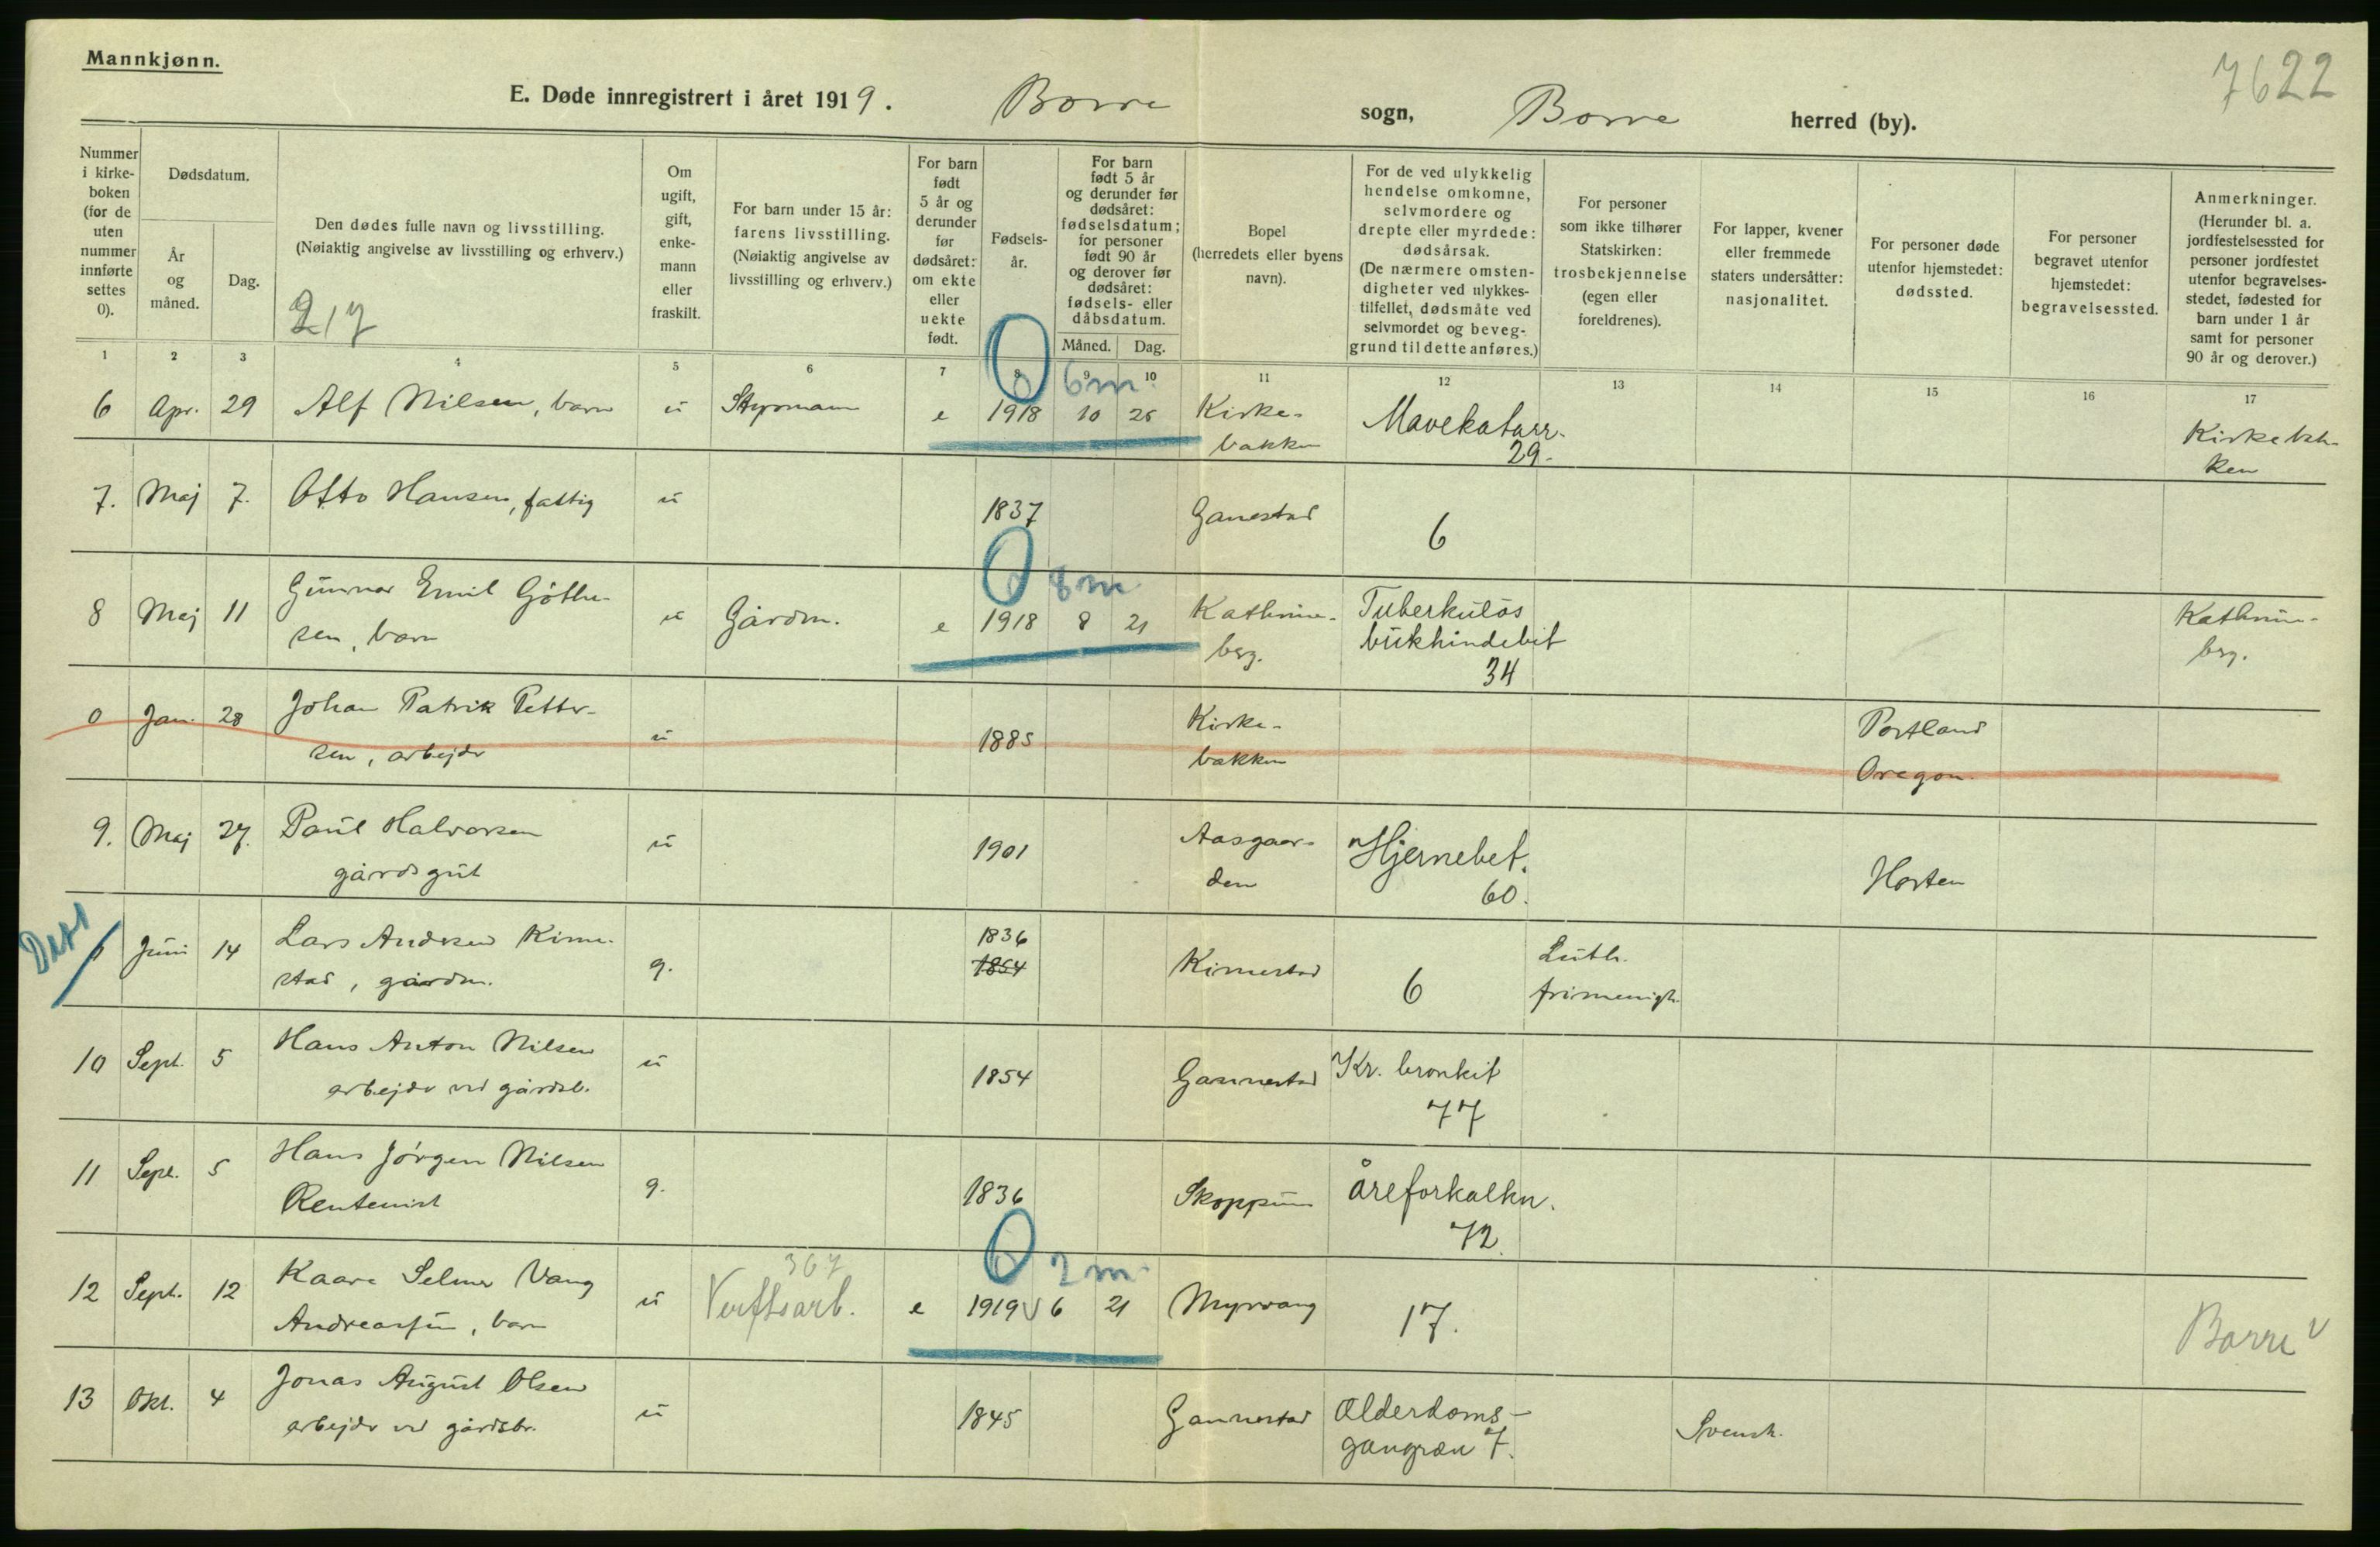 Mannkjønn.
7622
E. Døde innregistrert i året 1919. Borre sogn, Borre herred (by).
Nummer i kirke-boken (for de uten nummer innførte settes 0).
Dødsdatum.
År og måned.
Dag.
Den dødes fulle navn og livsstilling.
(Nøiaktig angivelse av livsstilling og erhverv.)
217
Om ugift, gift, enke-mann eller fraskilt.
For barn under 15 år: farens livsstilling. (Nøiaktig angivelse av livsstilling og erhverv.)
For barn født 5 år og derunder før dødsåret: om ekte eller uekte født.
Fødsels-år.
For barn født 5 år og derunder før dødsåret: fødselsdatum; for personer født 90 år og derover før dødsåret: fødsels- eller dåbsdatum.
Måned. Dag.
Bopel (herredets eller byens navn).
For de ved ulykkelig hendelse omkomne, selvmordere og drepte eller myrdede: dødsårsak. (De nærmere omsten-digheter ved ulykkes-tilfellet, dødsmåte ved selvmordet og beveg-grund til dette anføres.)
For personer som ikke tilhører Statskirken: trosbekjennelse (egen eller foreldrenes).
For lapper, kvener eller fremmede staters undersåtter: nasjonalitet.
For personer døde utenfor hjemstedet: dødssted.
For personer begravet utenfor hjemstedet: begravelsessted.
Anmerkninger. (Herunder bl. a. jordfestelsessted for personer jordfestet utenfor begravelses-stedet, fødested for barn under 1 år samt for personer 90 år og derover.)
1 2 3 4 5 6 7 8 9 10 11 12 13 14 15 16 17
0 6 m.
6 Apr. 29 Alf Nilsen, barn ü Styrmann e 1918 10 26 Kirke- Mavekatarr. Kirkebak-
bakken 29. ken
7. Maj 7. Otto Hansen, fattig ü 1837 Ganestad 6
0 8 m
8 Maj 11 Gunnar Emil Göthe- ü Gårdm. e 1918 8 21 Kathrine- Tuberkuløs Kathrine-
sen, barn berg. bukhindebet berg.
34
0 Jan. 28 Johan Patrik Petter- ü 1885 Kirke- Portland
sen, arbejder bakken Oregon.
9. Maj 27. Paul Halvorsen ü 1901 Aasgaar- Hjernebet. Horten
gårdsgut den 60.
Diss
0 Juni 14 Lars Andersen Kirne- g. 1836 Kirnestad 6 Luth.
stad, gårdm. 1854 frimenigh.
10 Sept. 5 Hans Anton Nilsen ü 1854 Gannestad Kr. bronkit
arbejder ved gårdsb. 77
11 Sept. 5 Hans Jørgen Nilsen g. 1836 Skoppum åreforkalkn.
Rentenist 72.
367 0 2 m
12 Sept. 12 Kaare Selmer Vang ü Verftsarb. e 1919 v 6 21 Myrvang 17. Borre v
Andreassen, barn
13 Okt. 4 Jonas August Olsen ü 1845 Gannestad Alderdoms- Svensk.
arbejder ved gårdsbr. gangræn 7.